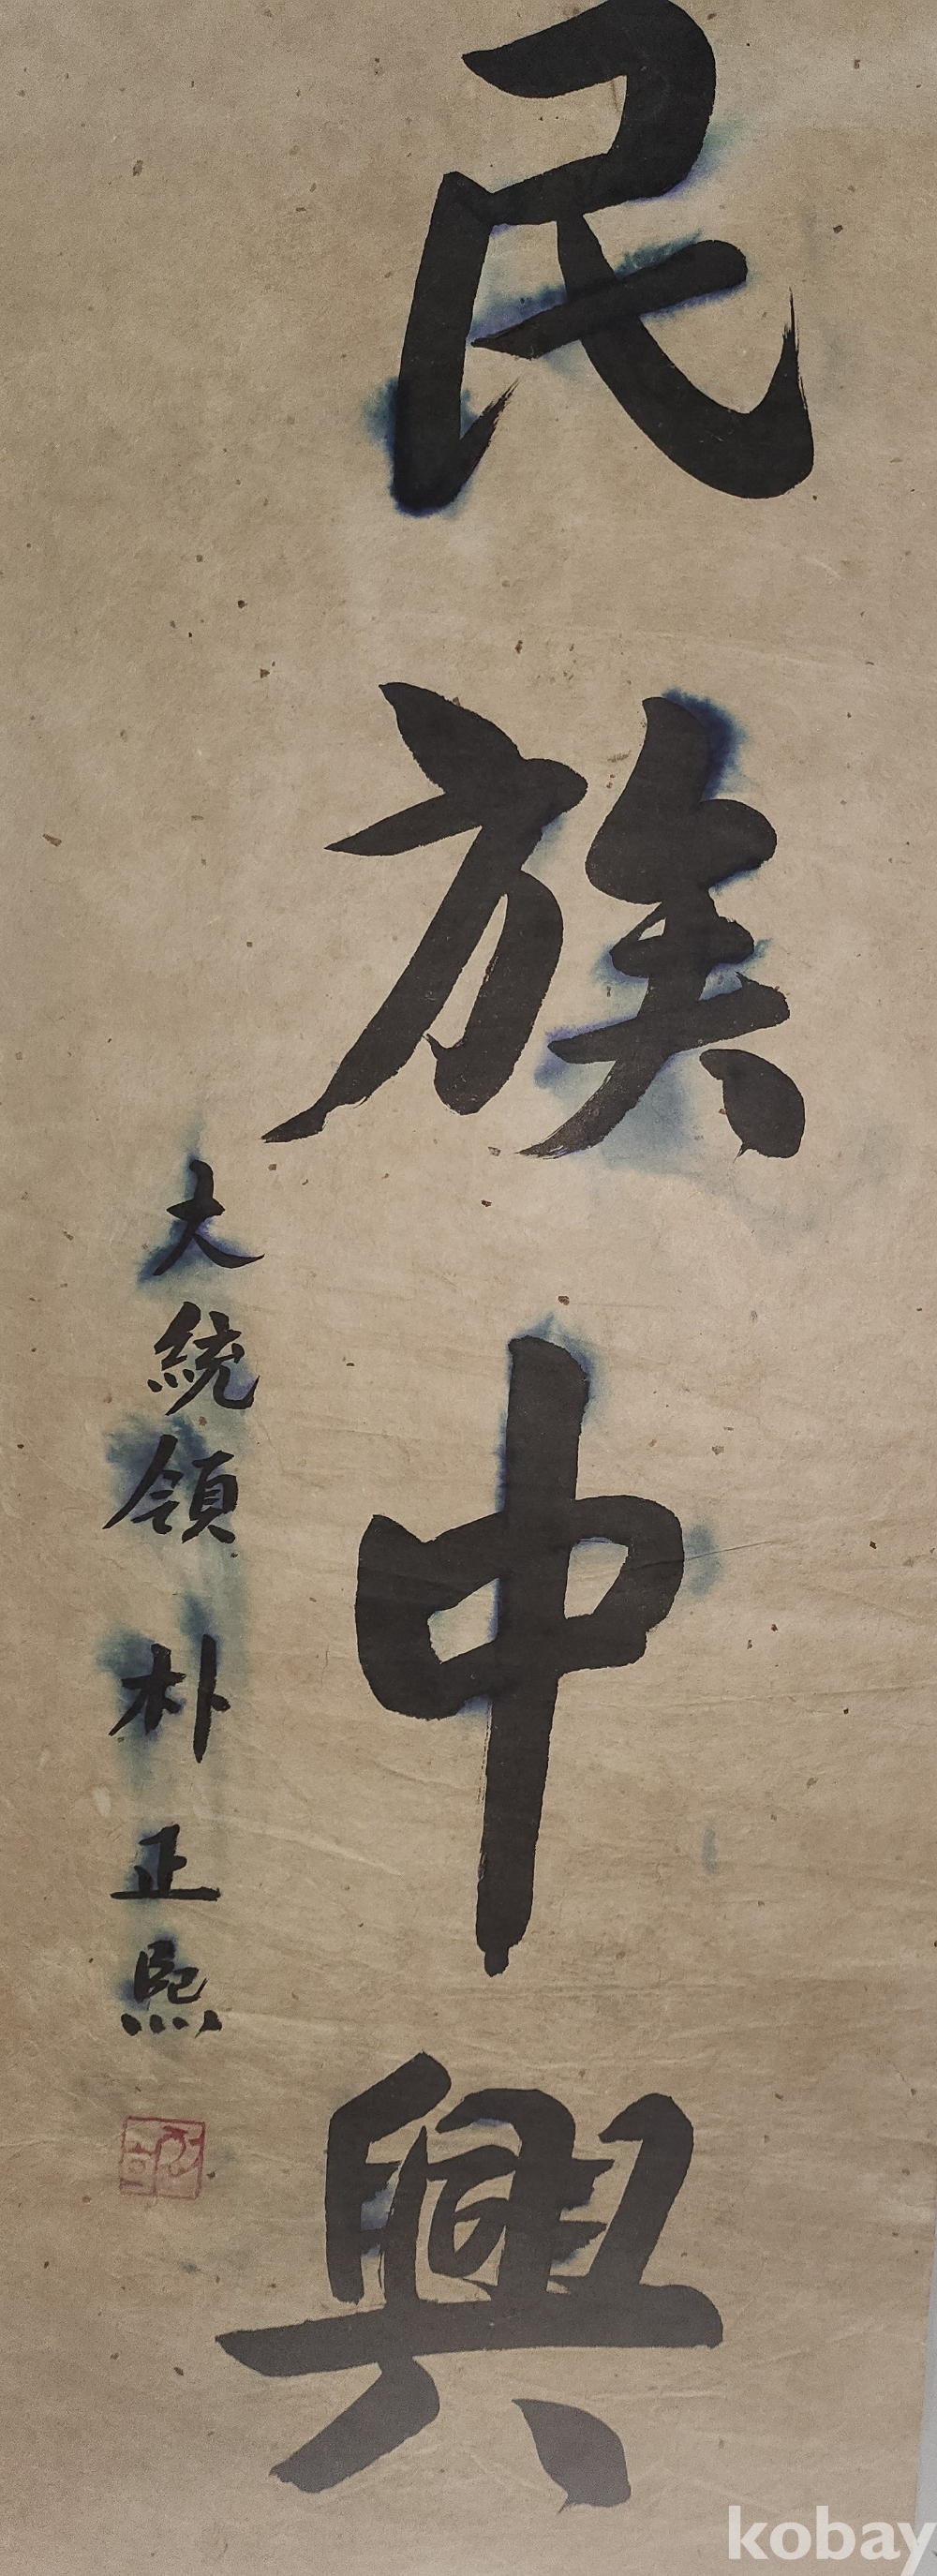 民族中興
大統領 朴正熙
kobay